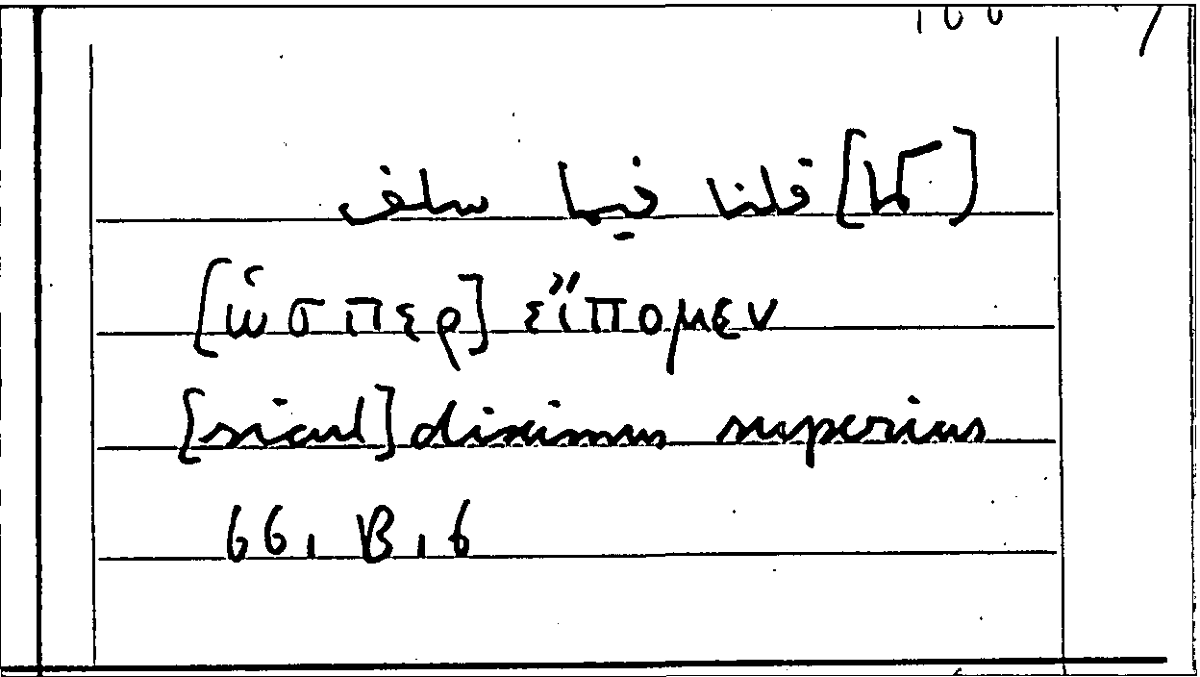 [كما] قلنا فيما سلف
[ὥσπερ] εἴπομεν
[sicut] diximus superius
66, B, 6